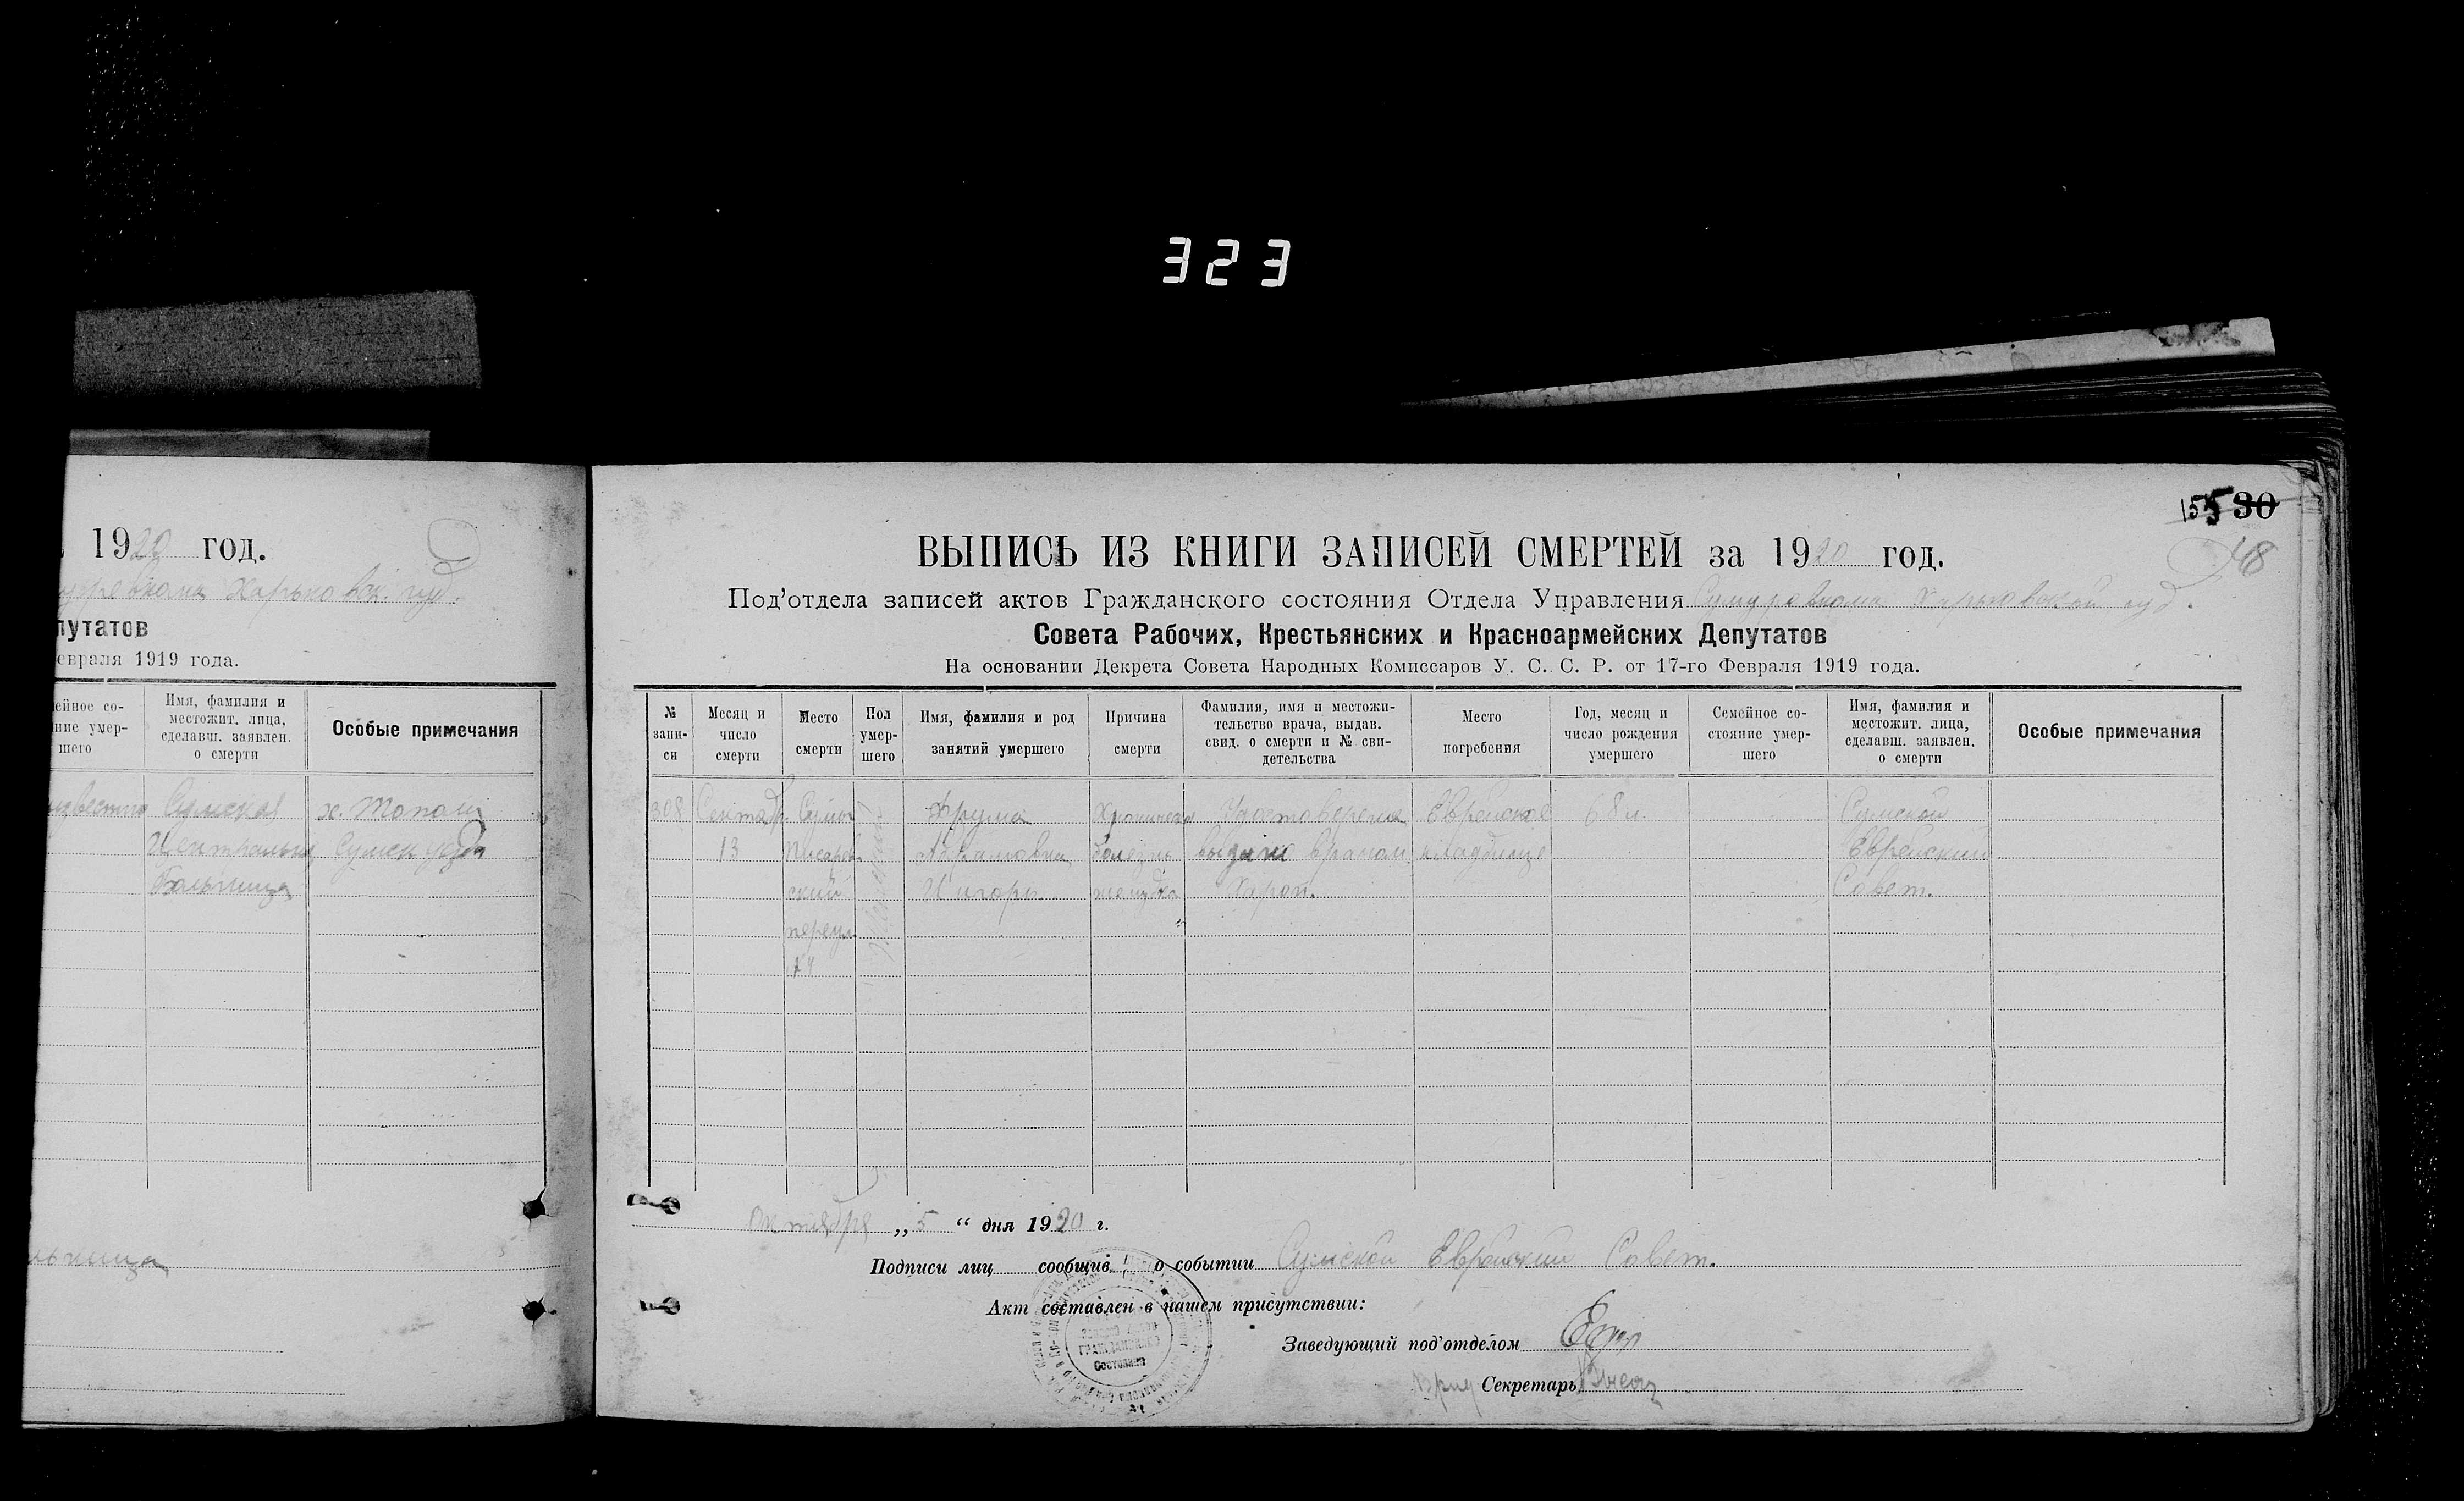 323
19 20 год.
Харьковск. губ.
путатов
евраля 1919 года.
ейное со-
ние умер-
шего
Имя, фамилия и
местожит. лица,
сделавш. заявлен.
о смерти
Особые примечания
Сумская
х. Топол
Центральн
Сумск уезда
Больница
льница
155 30
48
ВЫПИСЬ ИЗ КНИГИ ЗАПИСЕЙ СМЕРТЕЙ за 1920 год.
Под'отдела записей актов Гражданского состояния Отдела Управления Сумуревкома Харьковской губ.
Совета Рабочих, Крестьянских и Красноармейских Депутатов
На основании Декрета Совета Народных Комиссаров У. С. С. Р. от 17-го Февраля 1919 года.
№
запи-
си
Месяц и
число
смерти
Место
смерти
Пол
умер-
шего
Имя, фамилия и род
занятий умершего
Причина
смерти
Фамилия, имя и местожи-
тельство врача, выдав.
свид. о смерти и № сви-
детельства
Место
погребения
Год, месяц и
число рождения
умершего
Семейное со-
стояние умер-
шего
Имя, фамилия и
местожит. лица,
сделавш. заявлен.
о смерти
Особые примечания
308
Сентябр.
13
Сумы
ский
переул.
Фрума
Абрамовна
Хроническ
болезнь
желудка
выдано врачом
Еврейское
кладбище
68 л.
Сумской
Еврейский
Совет.
Октября „5“ дня 1920 г.
Подписи лиц сообщив о событии Сумской Еврейский Совет.
Акт составлен в нашем присутствии:
Заведующий под'отделом
Врид Секретарь
ГРАЖДАНСКОГО
Состояния